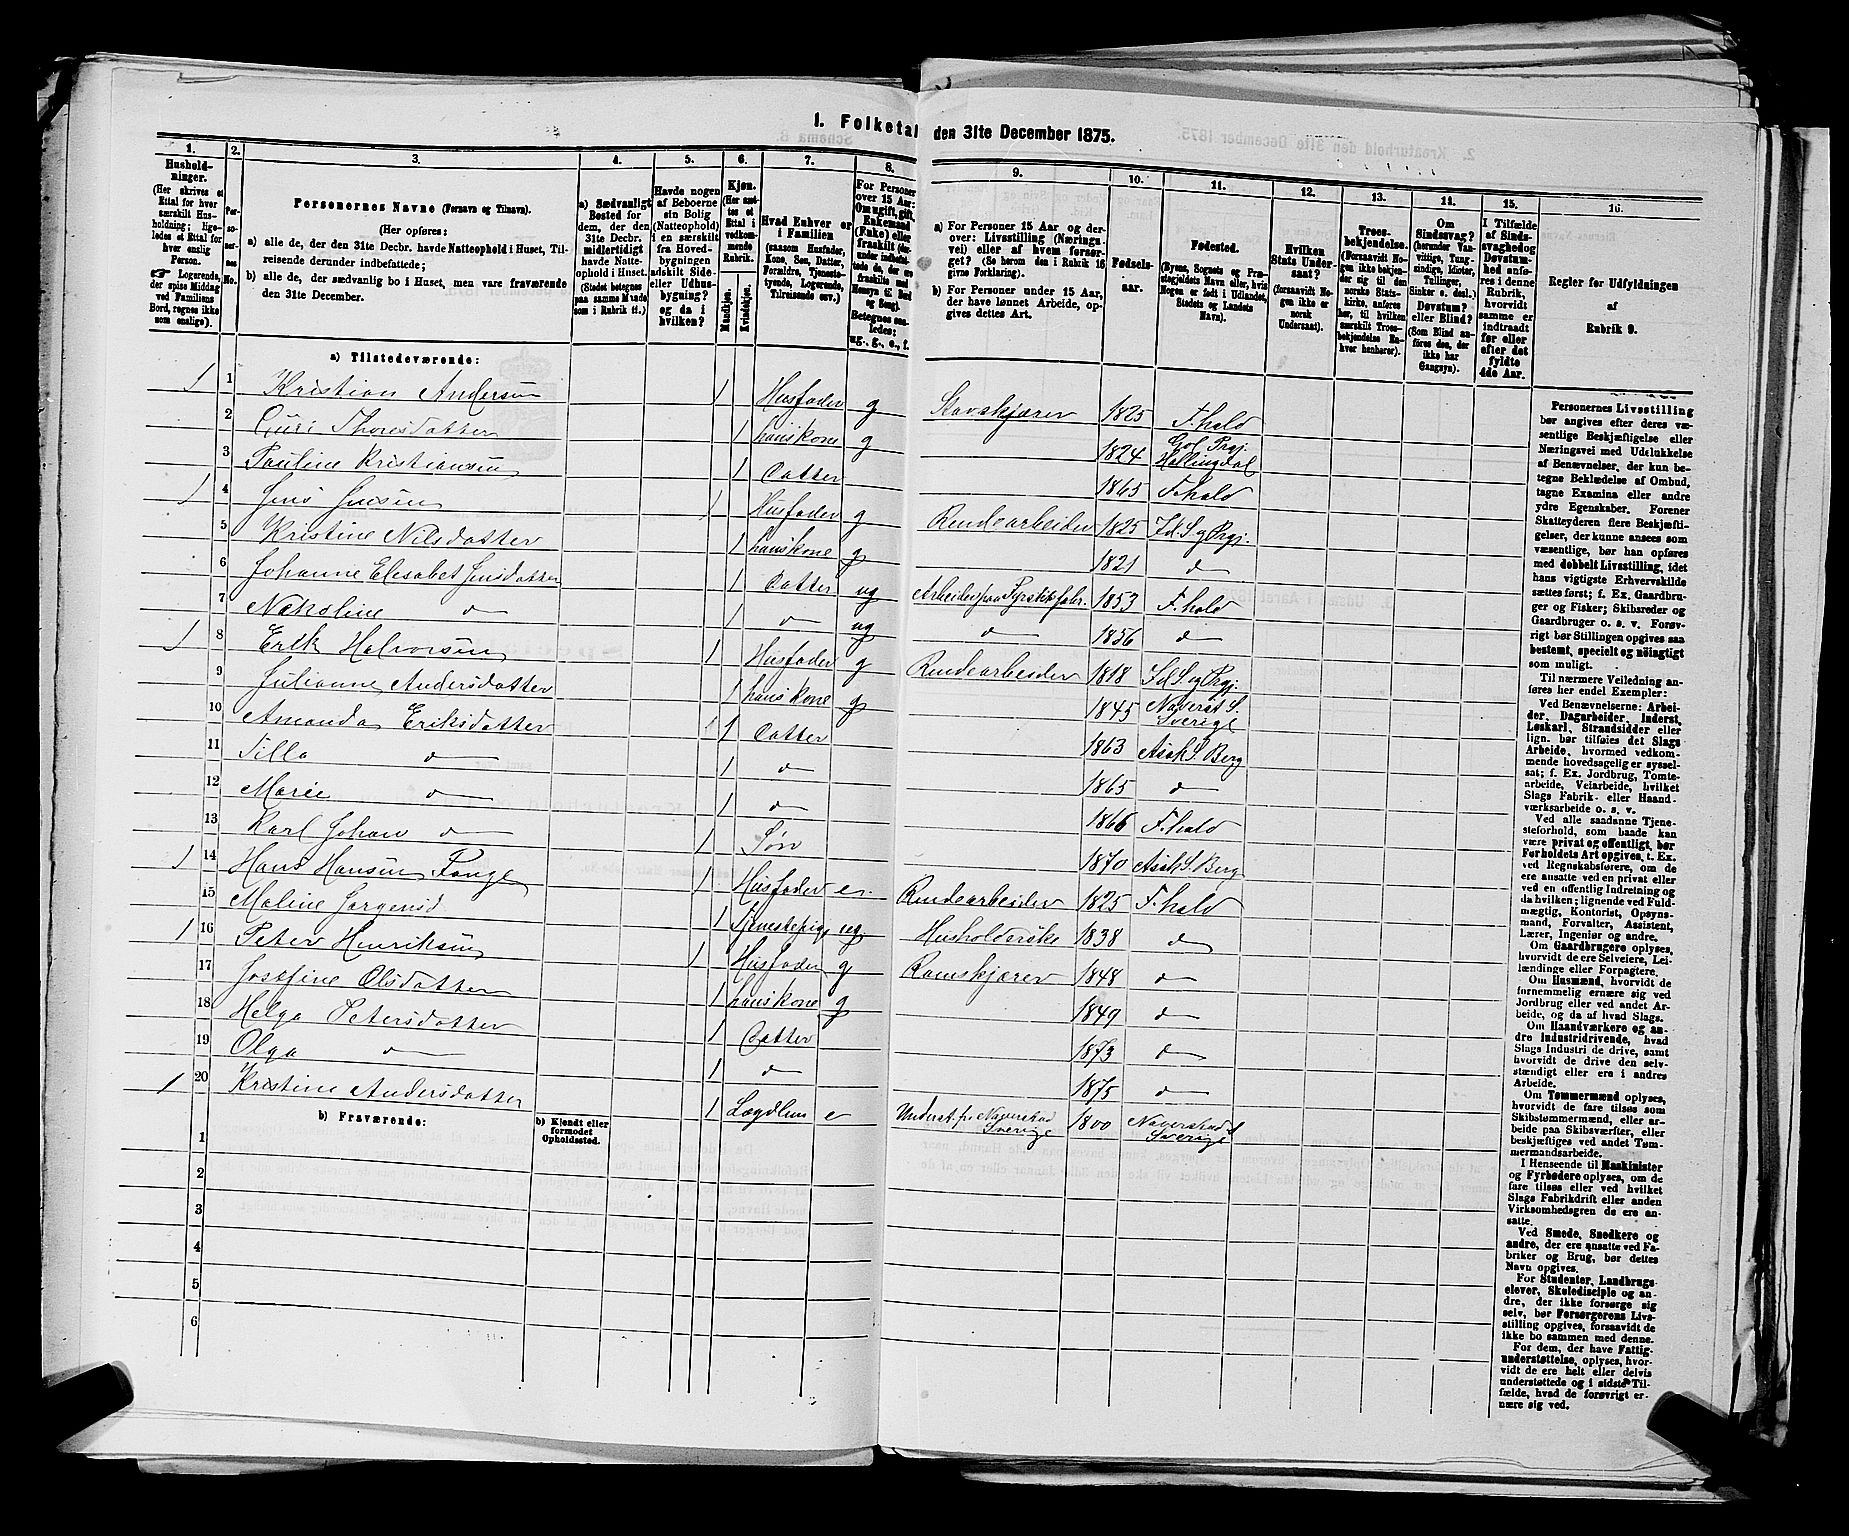 1. Folketal den 31te December 1875.
1. 2. 3. 4. 5. 6. 7. 8. 9. 10. 11. 12. 13. 14. 15. 16.
Hushold-
ninger.
(Her skrives et
Ettal for hver
særskilt Hus-
holdning; lige-
ledes et Ettal for
hver enslig
Person.
☛ Logerende,
der spise Middag
ved Familiens
Bord, regnes ikke
som enslige).
Per-
so-
ner-
nes
No.
Personernes Navne (Fornavn og Tilnavn).
(Her opføres:
a) alle de, der den 31te Decbr. havde Natteophold i Huset, Til-
reisende derunder indbefattede;
b) alle de, der sædvanlig bo i Huset, men vare fraværende
den 31te Decbr.
a) Sædvanligt
Bosted for
dem, der den
31te Decbr.
midlertidigt
havde Natte-
ophold i Huset.
(Stedet betegnes
paa samme Maade
som i Rubrik 11.)
Havde nogen
af Beboerne
sin Bolig
(Natteophold)
i en særskilt
fra Hoved-
bygningen
adskilt Side-
eller Udhus-
bygning?
og da i
hvilken?
Kjøn.
(Her sæt-
tes et
Ettal i
vedkom-
mende
Rubrik.
Mandkjøn.
Kvindekjøn.
Hvad Enhver er
i Familien
(saasom Husfader,
Kone, Søn, Datter,
Forældre, Tjeneste-
tyende, Logerende,
Tilreisende osv.)
For Personer
over 15 Aar:
Om ugift, gift,
Enkemand
(Enke) eller
fraskilt
Betegnes saa-
ledes:
ug., g., e., f.
a) For Personer 15 Aar og der-
over: Livsstilling (Nærings-
vei) eller af hvem forsør-
get? (Se herom den i Rubrik 16
givne Forklaring).
b) For Personer under 15 Aar,
der have lønnet Arbeide, op-
gives dettes Art.
Fødsels-
aar.
Fødested.
(Byens, Sognets og Præ-
stegjeldets Navn eller, hvis
Nogen er født i Udlandet,
Stedets og Landets
Navn).
Hvilken
Stats Under-
saat?
(forsaavidt No-
gen ikke er
norsk
Undersaat).
Troes-
bekjendelse.
(Forsaavidt No-
gen ikke bekjen-
der sig til den
norske Stats-
kirke, anfø-
res her, til hvilken
særskilt Troes-
bekjendelse En-
hver henhører).
Om
Sindssvag?
(herunder Van-
vittige, Tung-
sindige, Idioter,
Tullinger,
Sinker o. desl.)
Døvstum?
eller Blind?
(Som Blind an-
føres den, der
ikke har
Gangsyn).
I Tilfælde
af Sinds-
svaghed
og Døvstum-
hed anfø-
res i denne
Rubrik,
hvorvidt
samme er
indtraadt
før eller
efter det
fyldte
4de Aar.
Regler for Udfyldningen
af
Rubrik 9.
a) Tilstedeværende:
1 1 Kristian Andersen 1 Husfader g Stavskjærer 1825 F.hald
2 Guri Thoresdatter 1 hans kone g 1824 Gol Prgj. Hallingdal
3 Pauline Kristiansen 1 Datter 1865 F.hald
1 4 Jens Jensen 1 Husfader g Rendearbeider 1825 Id. S og Prgj.
5 Kristine Nilsdatter 1 hans kone g 1821 do
6 Johanne Elesabet Jensdatter 1 Datter ug Arbeider paa Fyrstikfabr. 1853 F.hald
7 Nikoline do 1 do ug do 1856 do
1 8 Erik Halvorsen 1 Husfader g Rendearbeider 1818 Id. S og Prgj.
9 Julianne Andersdatter 1 hans kone g 1845 Naverst S. Sverige
10 Amanda Eriksdatter 1 Datter 1863 Asak S. Berg
11 Tilla do 1 do 1865 do
12 Marie do 1 do 1866 F.hald
13 Karl Johan do 1 Søn 1870 Asak S. Berg
1 14 Hans Hansen Tange 1 Husfader e. Rendearbeider 1825 F.hald
15 Maline Jørgensd 1 Tjenestepige ug Husholderske 1838 do
1 16 Peter Henriksen 1 Husfader g Ramskjærer 1848 do
17 Josefine Olsdatter 1 hans kone g 1849 do
18 Helga Petersdatter 1 Datter 1873 do
19 Olga do 1 do 1875 do
1 20 Kristine Andersdatter 1 Lægdlem e Underst. fr. Naverstad Sverige 1800 Naverstad S Sverige
b) Fraværende:
b) Kjendt eller
formodet
Opholdssted.
1
2
3
4
5
6
Personernes Livsstilling
bør angives efter deres væ-
sentlige Beskjæftigelse eller
Næringsvei med Udelukkelse
af Benævnelser, der kun be-
tegne Beklædelse af Ombud,
tagne Examina eller andre
ydre Egenskaber. Forener
Skatteyderen flere Beskjæfti-
gelser, der kunne ansees som
væsentlige, bør han opføres
med dobbelt Livsstilling, idet
hans vigtigste Erhvervskilde
sættes først; f. Ex. Gaardbru-
ger og Fisker; Skibsreder og
Gaardbruger o. s. v. Forøv-
rigt bør Stillingen opgives saa
bestemt, specielt og nøiagtigt
som muligt.
Til nærmere Veiledning an-
føres her endel Exempler:
Ved Benævnelserne: Arbei-
der, Dagarbeider, Inderst,
Løskarl, Strandsidder eller
lign. bør tilføies det Slags
Arbeide, hvormed vedkom-
mende hovedsagelig er syssel-
sat; f. Ex. Jordbrug, Tomte-
arbeide, Veiarbeide, hvilket
Slags Fabrik- eller Haand-
værksarbeide o. s. v.
Ved alle saadanne Tjene-
steforhold, som baade kan
være privat og offentligt, bør
Forholdets Art opgives, t. Ex.
ved Regnskabsførere, om de
ere ansatte ved en privat eller
ved en offentlig Indretning og
da hvilken; lignende ved Fuld-
mægtig, Kontorist, Opsyns-
mand, Forvalter, Assistent,
Lærer, Ingeniør og andre.
Om Gaardbrugere oplyses,
hvorvidt de ere Selveiere, Lei-
lændinge eller Forpagtere.
Om Husmænd, hvorvidt de
fornemmelig ernære sig ved
Jordbrug eller ved andet Ar-
beide, og da af hvad Slags.
Om Haandværkere og an-
dre industridrivende, hvad
Slags Industri de drive, samt
hvorvidt de drive den selv-
stændigt eller ere i andres
Arbeide.
Om Tømmermænd oplyses,
hvorvidt de fare tilsøs som
Skibstømmermænd, eller ar-
beide paa Skibsværfter, eller
beskjæftiges ved andet Tøm-
mermandsarbeide.
I Henseende til Maskinister
og Fyrbødere oplyses, om de
fare tilsøs eller ved hvilket
Slags Fabrikdrift eller anden
Virksomhedsgren de ere an-
satte.
Ved Smede, Snedkere og
andre, der ere ansatte ved Fa-
briker og Brug, bør dettes
Navn opgives.
For Studenter, Landbrugs-
elever, Skoledisciple og an-
dre, der ikke forsørge sig
selv, bør Forsørgerens Livs-
stilling opgives, forsaavidt de
ikke bo sammen med denne.
For dem, der have Fattig-
understøttelse, oplyses, hvor-
vidt de ere helt eller delvis
understøttede og i sidste Til-
fælde, hvad de forøvrigt er-
nære sig ved.